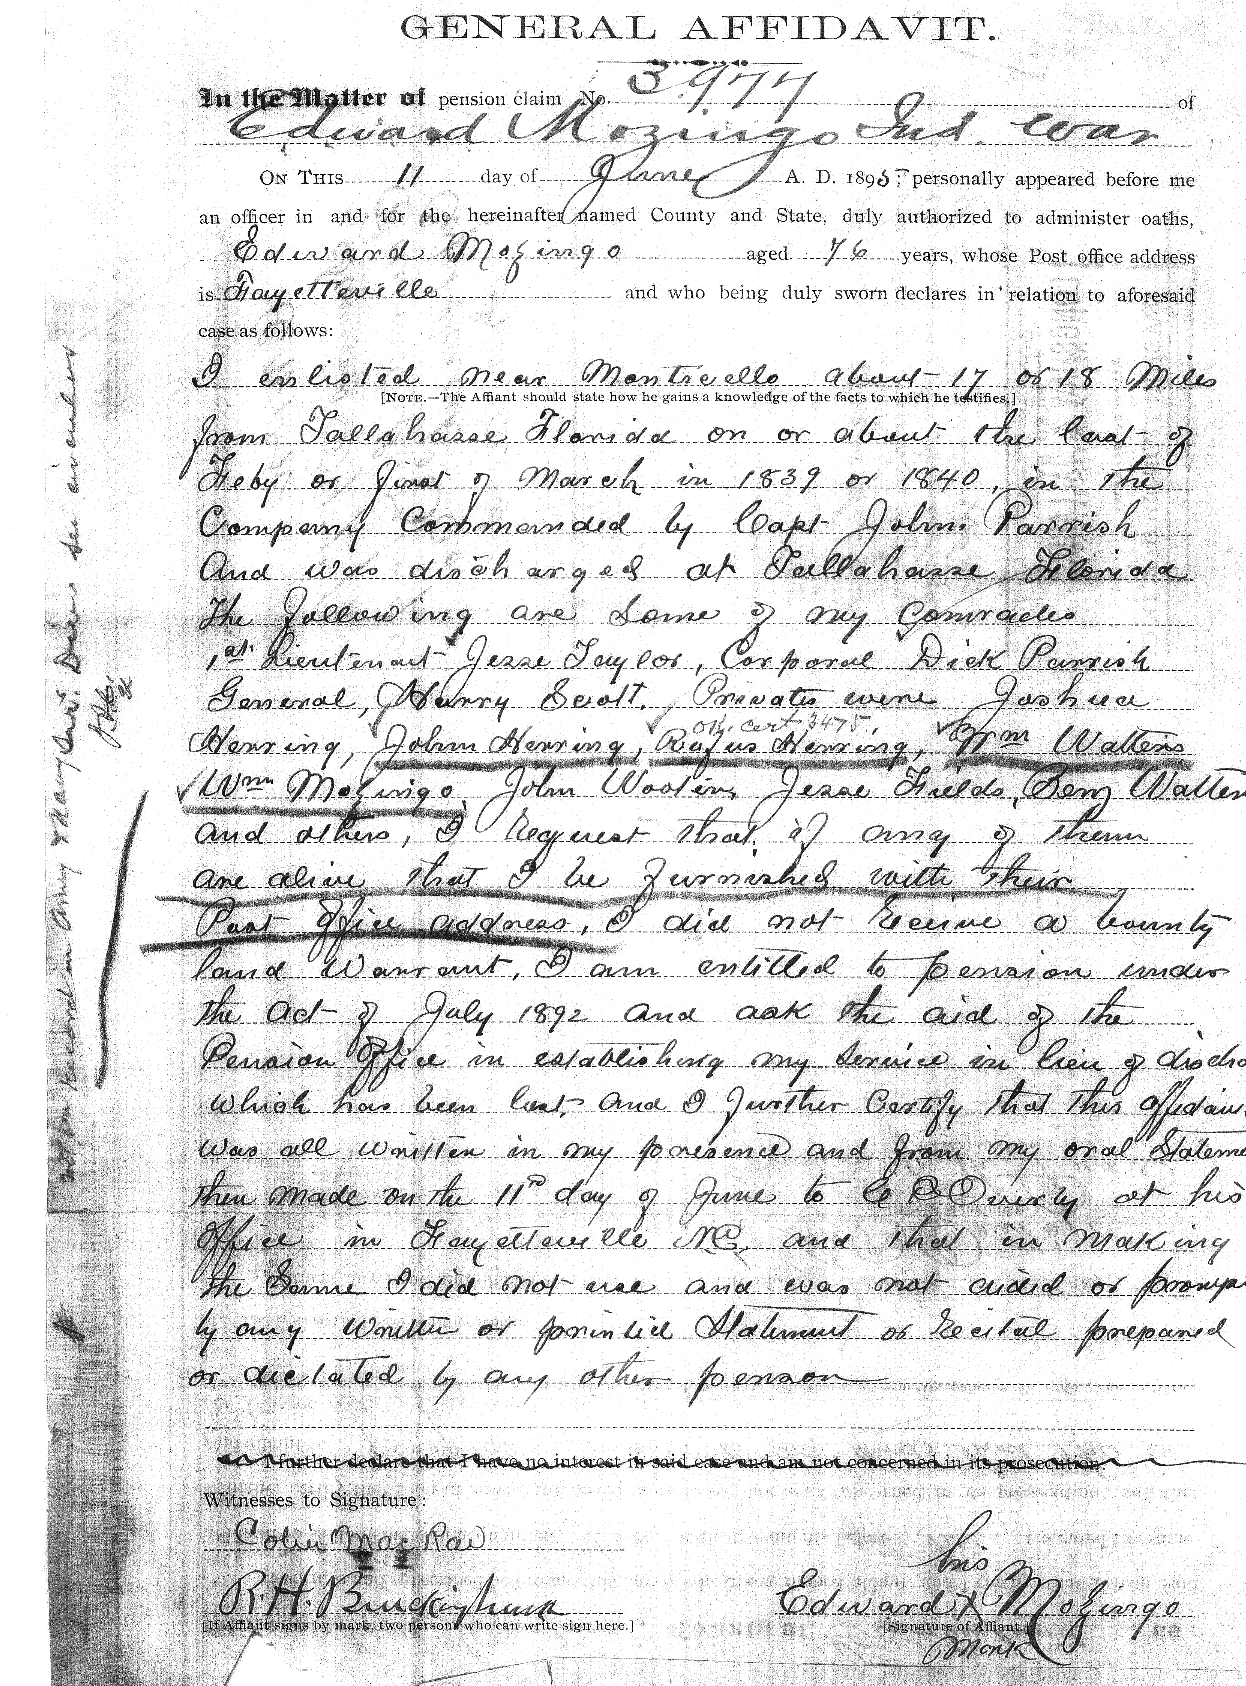 GENERAL AFFIDAVIT.
In the Matter of pension claim No. 3977 of
Edward Mozingo Ind. War
ON THIS 11 day of June A. D. 1895, personally appeared before me
an officer in and for the hereinafter named County and State, duly authorized to administer oaths,
Edward Mozingo aged 76 years, whose Post office address
is Fayetteville and who being duly sworn declares in relation to aforesaid
case as follows:
I enlisted near Monticello about 17 or 18 Miles
[NOTE.—The Affiant should state how he gains a knowledge of the facts to which he testifies.]
from Tallahasse Florida on or about the last of
Feby or first of March in 1839 or 1840, in the
Company Commanded by Capt John Parrish
And was discharged at Tallahasse Florida
The following are some of my Comrades
1st Lieutenant Jesse Taylor, Corporal Dick Parrish
General, Harry Scott. Privates were Joshua
Ok. cert 3475.
Herring, John Herring, Rufus Herring, Wm Watters
Wm Mozingo, John Wooten, Jesse Fields, Benj Watter
and others, I Request that if any of them
are alive that I be furnished with their
Post office address, I did not Receive a bounty
land Warrant, I am entitled to pension under
the Act of July 1892 and ask the aid of the
Pension Office in establishing my service in lieu of discha
which has been lost. And I further Certify that this affidavi
was all written in my presence and from my oral Stateme
then made on the 11th day of June to at his
office in Fayetteville NC, and that in making
the Same I did not use and was not aided or promp
by any written or printed Statement or Recital prepared
or dictated by any other person
I further declare that I have no interest in said case and am not concerned in its prosecution.
Witnesses to Signature:
Colin MacRae
R. H. Buckingham
[If Affiant signs by mark, two persons who can write sign here.]
his
Edward X Mozingo
[Signature of Affiant.]
Mark
not on Record in Army &